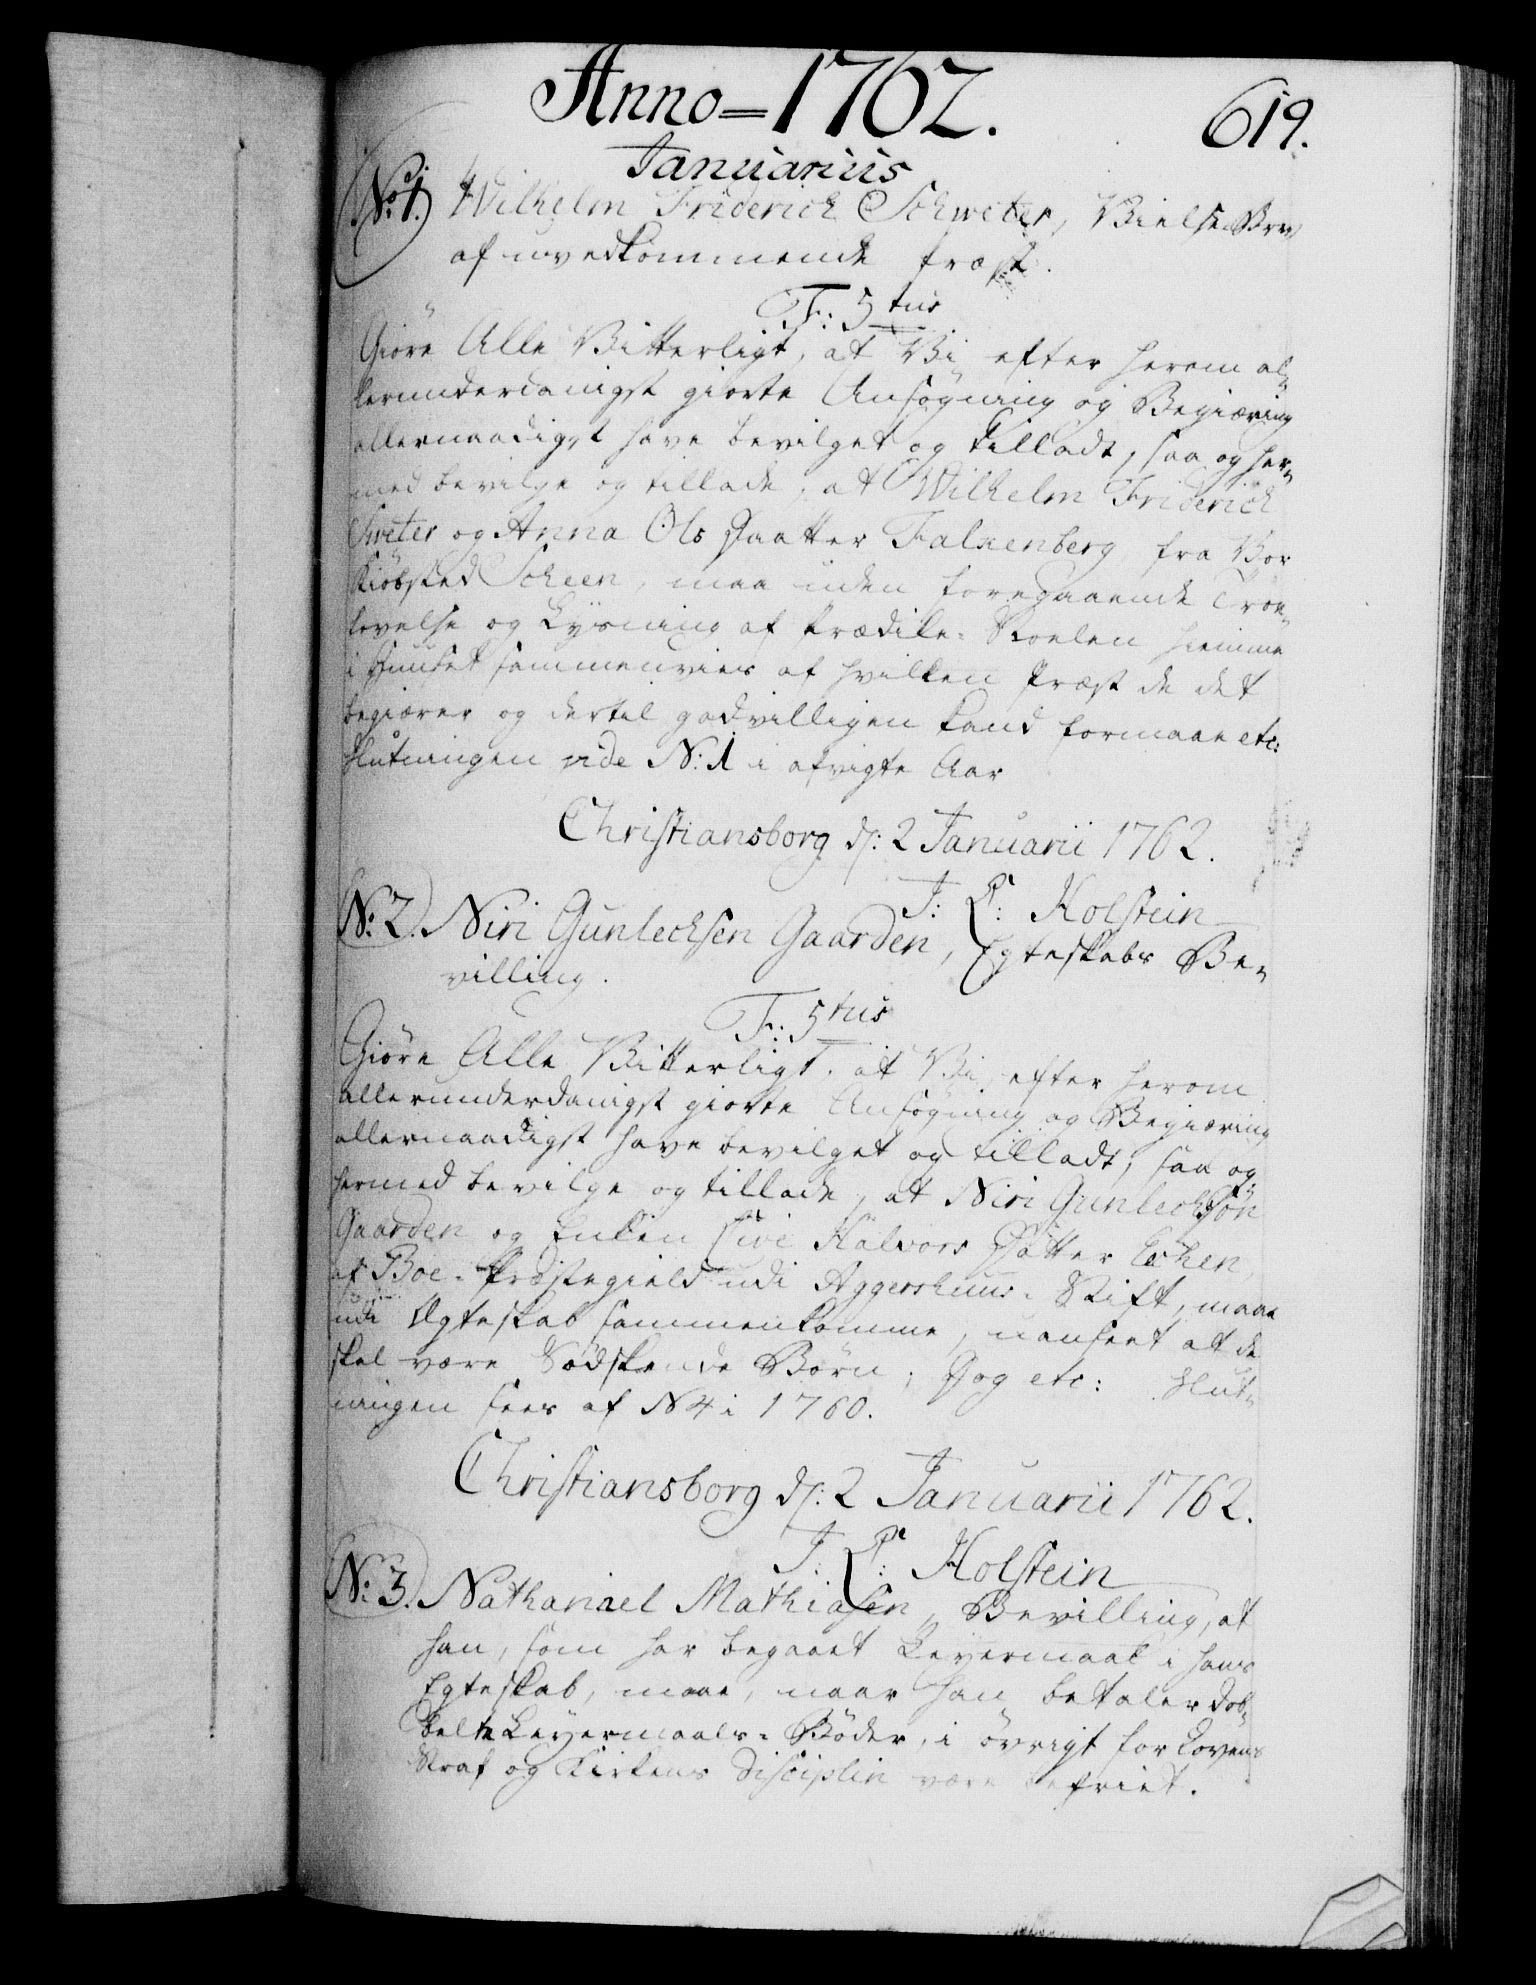 Anno = 1762.
619.
Januarius
No 1. Wilhelm Friderich Schweter, Vielse Brev
af uvedkommende Præst.
F: 5tus
Giöre Alle Vitterligt, at Vi efter herom al-
lerunderdanigst giorte Ansøgning og Begiæring
allernaadigst have bevilget og tilladt, saa og her-
med bevilge og tillade, at Wilhelm Friderich
og Anna Ols Daatter Falxenberg fra Vor
Kiöbsted Scheen, maa uden foregaaende Troe-
lovelse og Lysning af Prædike-Stoelen hiemme
i Huuset sammenvies af hvilken Præst de det
begiærer og dertil godvilligen kand formaae etc:
Slutningen vide N: 1 i afvigte Aar
Christiansborg d: 2 Januarii 1762.
J: L: Holstein
N: 2. Niri Gunlechsen Gaarden, Egteskabs Be-
villing.
F: 5tus
Giöre Alle Vitterligt, at Vi efter herom
allerunderdanigst giorte Ansøgning og Begiæring
allernaadigst have bevilget og tilladt, saa og
hermed bevilge og tillade, at Niri Gunlechsøn
Gaarden og Enken Live Halvors Datter
af Boe-Præstegield udi Aggershuus-Stift, maae
udi Ægteskab sammenkomme, uanseet at de
skal være Sødskende Børn; Dog etc: Slut-
ningen sees af N 4 i 1760.
Christiansborg d: 2 Januarii 1762.
J: L: Holstein
N: 3. Nathanael Mathiasen, Bevilling, at
han, som har begaaet Leyermaal i hans
Egteskab, maae, naar han betaler dob-
belte Leyermaals-Bøder, i øvrigt for Lovens
Straf og Kirkens Disciplin være befriet.